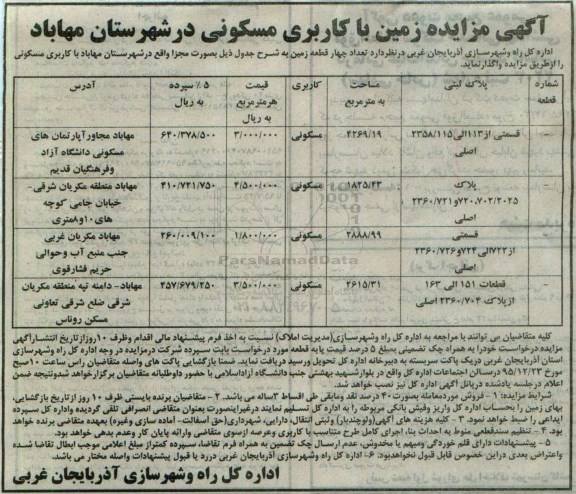 آگهی مزایده زمین با کاربری مسکونی در شهرستان مهاباد
اداره کل راه وشهرسازی آذربایجان غربی درنظردارد تعداد چهار قطعه زمین به شرح جدول ذیل بصورت مجزا واقع درشهرستان مهاباد با کاربری مسکونی
را ازطریق مزایده واگذارنماید.
شماره قطعه | پلاک ثبتی | مساحت به مترمربع | کاربری | قیمت هرمترمربع به ریال | ۵٪ سپرده به ریال | آدرس
- | قسمتی از۱۱۳الی۲۳۵۸/۱۱۵ اصلی | ۴۲۶۹/۱۹ | مسکونی | ۳/۰۰۰/۰۰۰ | ۶۴۰/۳۷۸/۵۰۰ | مهاباد مجاورآپارتمان های مسکونی دانشگاه آزاد وفرهنگیان قدیم
- | پلاک ۷۲۰،۷۰۲/۲۰۲۵و۲۳۶۰/۷۲۱ اصلی | ۱۸۲۵/۴۳ | مسکونی | ۴/۵۰۰/۰۰۰ | ۴۱۰/۷۲۱/۷۵۰ | مهاباد منطقه مکریان شرقی- خیابان جامی کوچه های۱۰و۸متری
- | قسمتی از۷۲۲الی۷۲۴و۲۳۶۰/۷۲۶ اصلی | ۲۸۸۸/۹۹ | مسکونی | ۱/۸۰۰/۰۰۰ | ۲۶۰/۰۰۹/۱۰۰ | مهاباد مکریان غربی جنب منبع آب وحوالی حریم فشارقوی
- | قطعات ۱۵۱ الی ۱۶۳ ازپلاک ۲۳۶۰/۷۰۴ اصلی | ۲۶۱۵/۳۱ | مسکونی | ۳/۵۰۰/۰۰۰ | ۴۵۷/۶۷۹/۲۵۰ | مهاباد- دامنه تپه منطقه مکریان شرقی ضلع شرقی تعاونی مسکن روناس
ParsNamadData
کلیه متقاضیان می توانند با مراجعه به اداره کل راه وشهرسازی(مدیریت املاک) نسبت به اخذ فرم پیشنهاد مالی اقدام وظرف ۱۰روزازتاریخ انتشارآگهی
مزایده درخواست خودرا به همراه چک تضمینی بمبلغ ۵ درصد قیمت پایه قطعه مورد درخواست بابت سپرده شرکت درمزایده در وجه اداره کل راه وشهرسازی
استان آذربایجان غربی دریک پاکت سربسته به دبیرخانه اداره کل تحویل ورسید دریافت نماید. ضمنا بازگشایی پاکت های واصله متقاضیان راس ساعت ۱۰صبح
مورخ ۹۵/۱۲/۲۳ درسالن اجتماعات اداره کل واقع در بلوارشهید بهشتی جنب دانشگاه آزاداسلامی با حضور داوطلبانه متقاضیان برگزارخواهد شدونتیجه ضمن
اعلام درجلسه یادشده درپانل آگهی اداره کل نیز نصب خواهد شد.
شرایط مزایده: ۱- فروش موردمعامله بصورت ۴۰ درصد نقد ومابقی طی اقساط ۳ساله می باشد. ۲- متقاضیان برنده بایستی ظرف ۱۰ روز ازتاریخ بازگشایی،
بهای زمین را بحساب اداره کل واریز وفیش بانکی مربوطه را به اداره کل تسلیم نمایند درغیراینصورت بعنوان متقاضی انصرافی تلقی گردیده واداره کل سپرده
ایداعی را ضبط خواهد نمود. ۳- کلیه هزینه های آگهی(ولوچندبار) وثبتی انتقال، دارایی، شهرداری(حق اسفالت، آماده سازی وغیره) بعهده متقاضی برنده خواهد
بود. ۴- تنظیم سندقطعی منوط به احداث بنا، اجرای کامل طرح متناسب با کاربری وعرصه ازسوی متقاضی وارائه پایان کار وعدم بدهی خواهد بود.
۵- پیشنهادات دارای قلم خوردگی ومبهم یا مخدوش، عدم ارسال چک تضمین به همراه فرم تقاضا، سپرده کمتراز مبلغ اعلامی موجب ابطال تقاضا شده
واعتراض بعدی دراین خصوص قابل قبول نخواهدبود: ۶- اداره کل راه وشهرسازی آذربایجان غربی دررد یا قبول پیشنهادات واصله مختار می باشد.
اداره کل راه وشهرسازی آذربایجان غربی